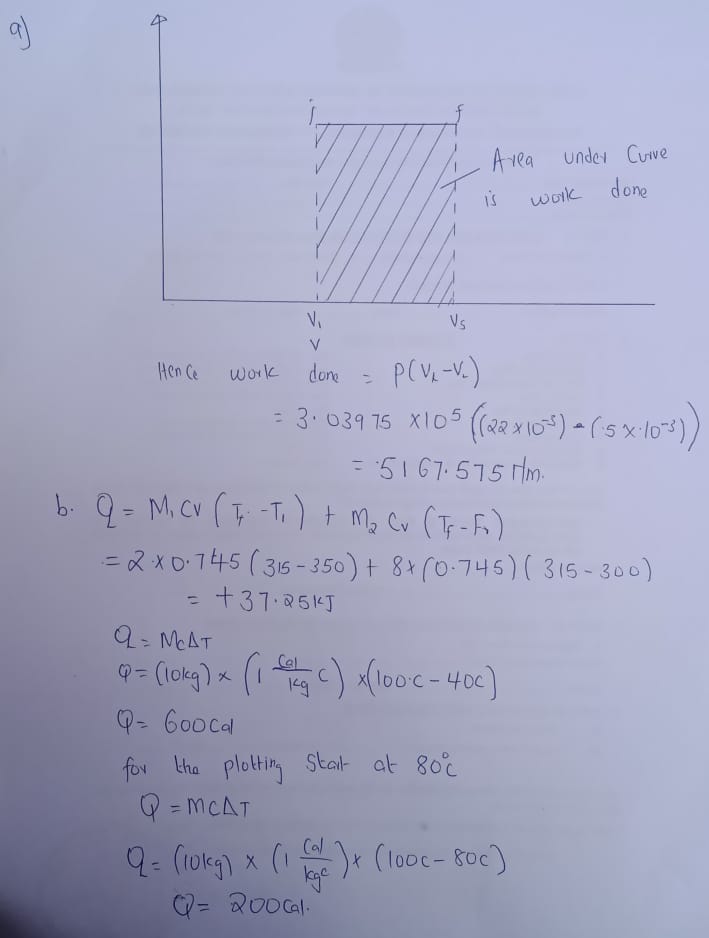 a)
i f
Area under Curve
is work done
V₁ V₅
V
Hence work done = P(V₂-V₁)
= 3.03975 ×10⁵ ((22×10⁻³) - (.5×10⁻³))
= 5167.575 Nm.
b. Q = M₁CV (Tf - T₁) + M₂ Cv (Tf - F₂)
= 2×0.745 (315-350) + 8×(0.745)(315-300)
= +37.25KJ
Q = MCΔT
Q = (10kg) × (1 Cal/kg C) × (100°C - 40C)
Q = 600Cal
for the plotting Start at 80°C
Q = MCΔT
Q = (10kg) × (1 Cal/kg C) × (100C - 80C)
Q = 200Cal.